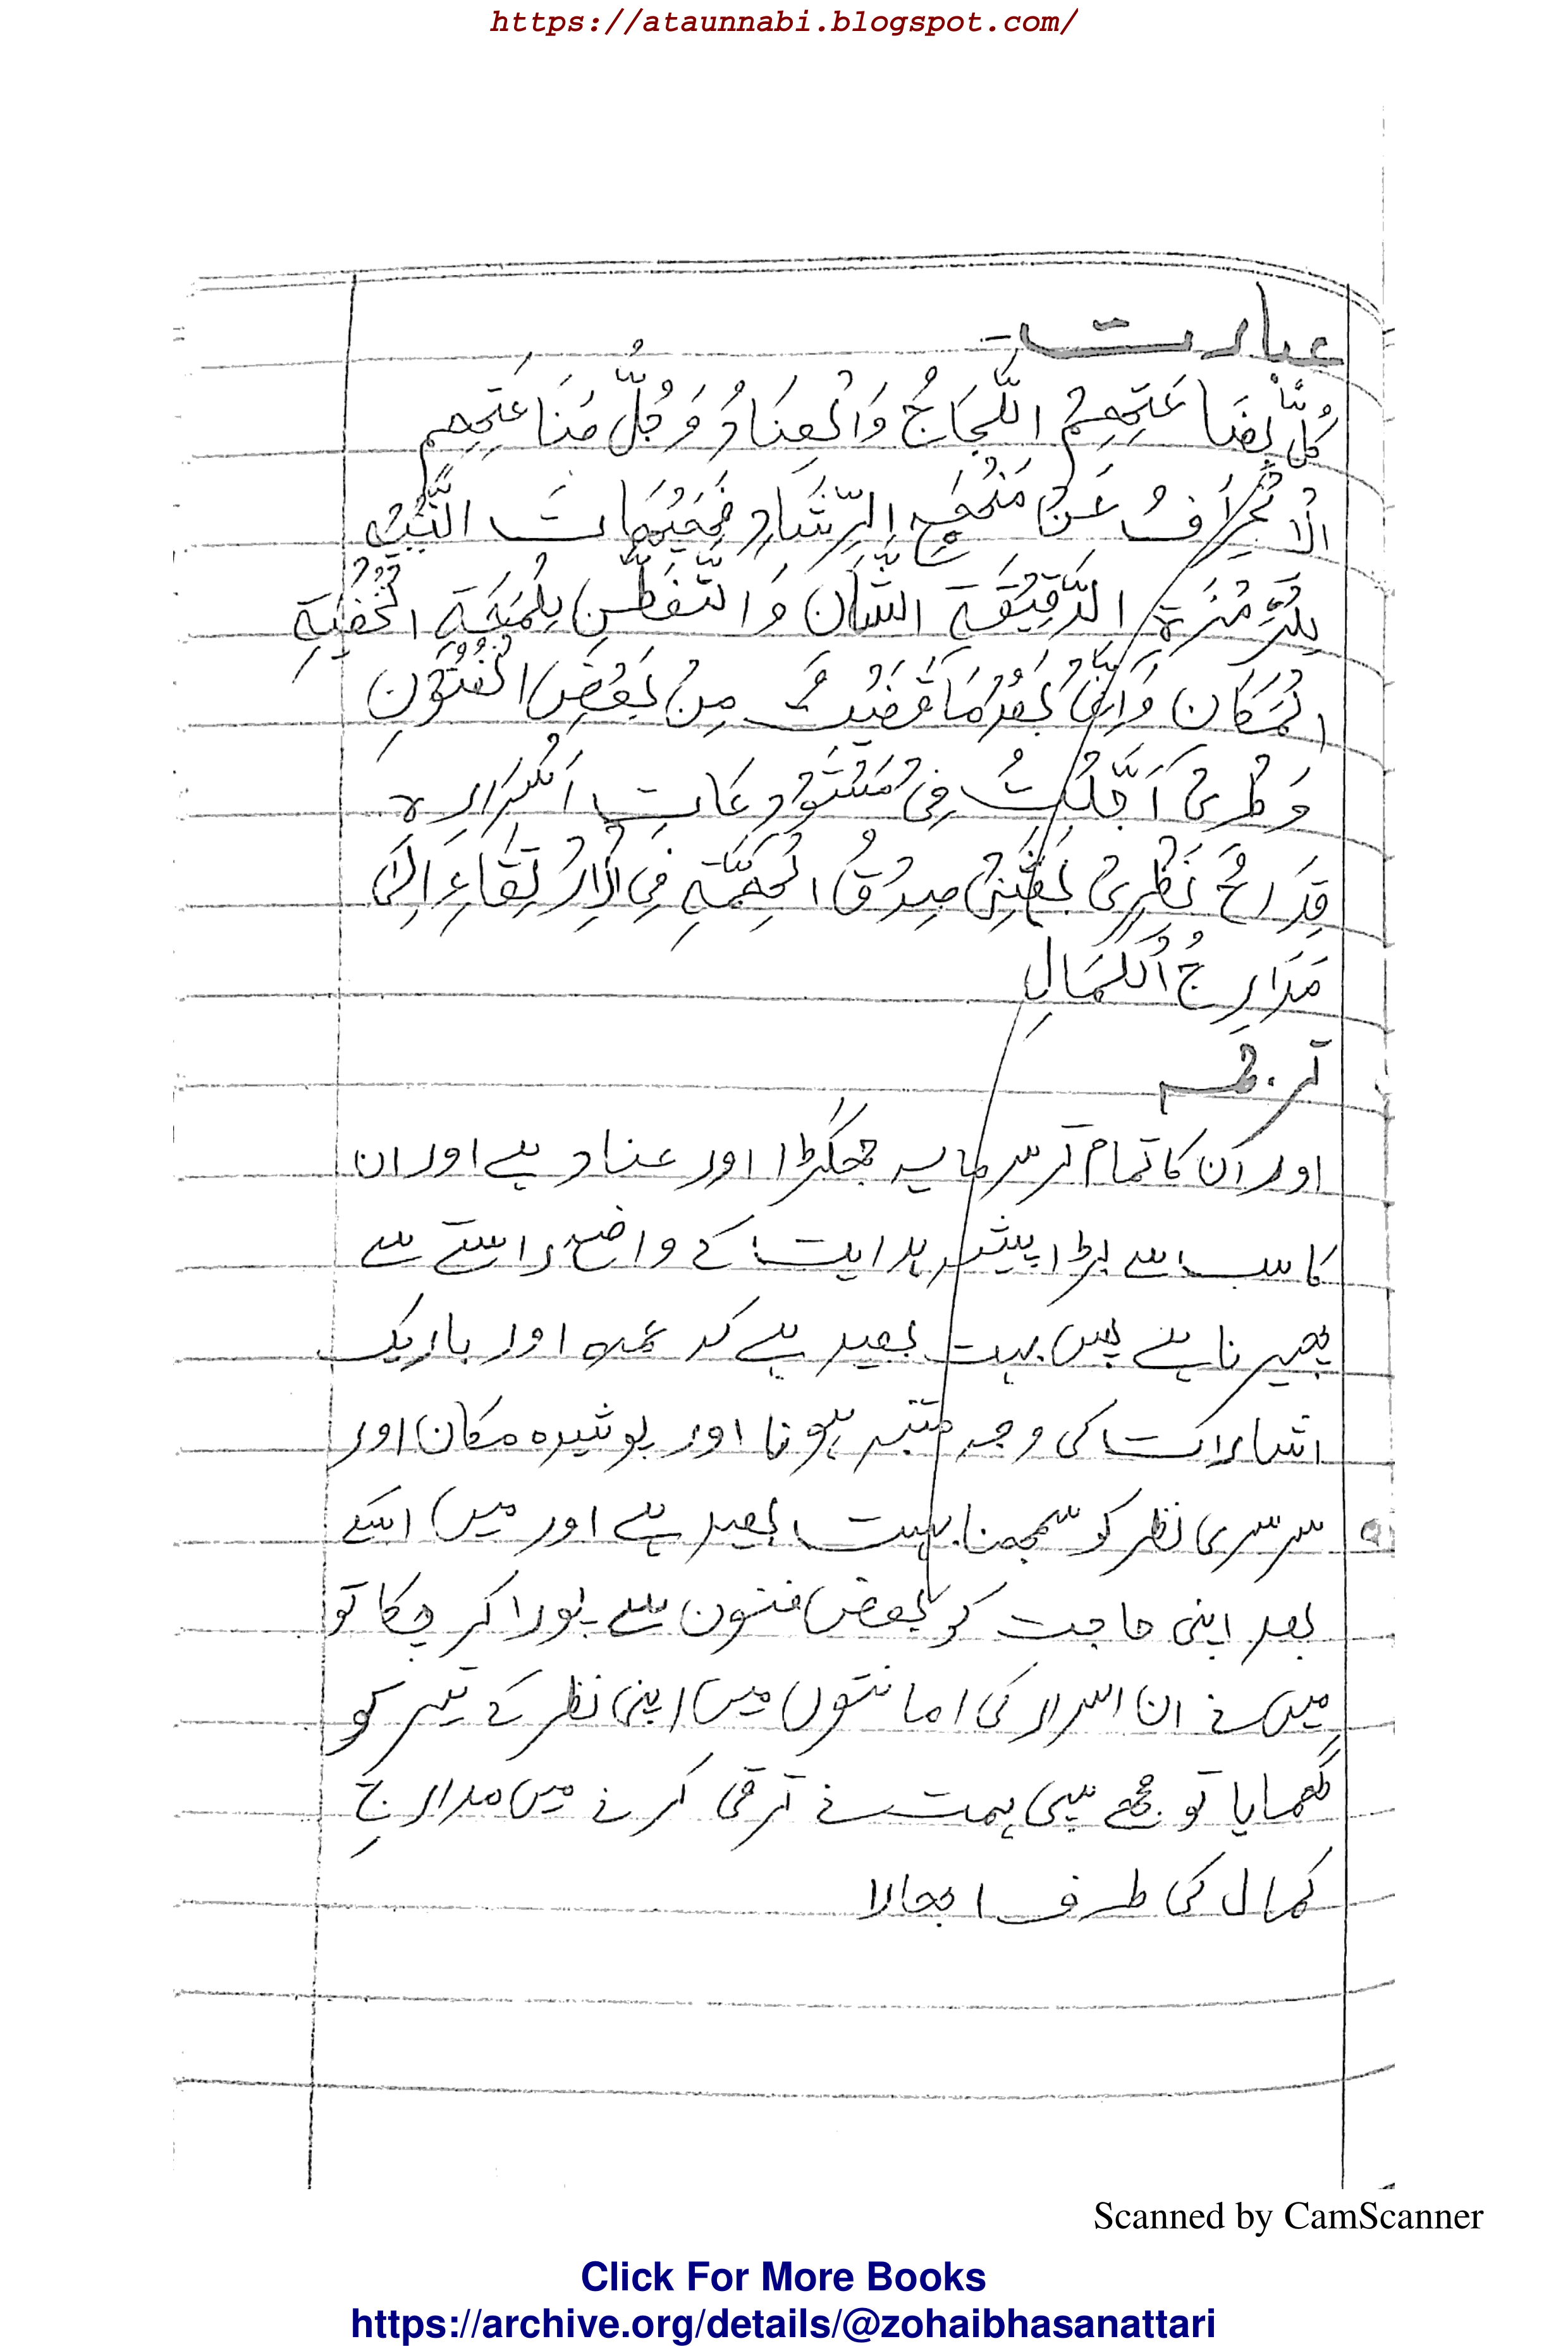 https://ataunnabi.blogspot.com/
عبارت۔
كُلُّ بِضَاعَتِهِمُ اللَّجَاجُ وَالْعِنَادُ وَجُلُّ صَنَاعَتِهِمِ
الْاِنْحِرَافُ عَنْ مَنْهَجِ الرَّشَادِ فَهَيْهَاتَ التَّنَبُّهُ
لِلرَّمْزَةِ الدَّقِيْقَةِ الشَّأنِ وَالتَّفَطُّنِ لِلُمْحَةِ الْخَفِيَّةِ
الْمَكَانِ وَاِنِّىْ بَعْدَ مَا قَضَيْتُ مِنْ بَعْضِ الْفُنُوْنِ
وَطَرِىْ اَجَلْتُ فِىْ مُسْتَوْدِعَاتِ اَسْرَارِهٖ
قِدَاحَ نَظْرِىْ بَعَثَنِىْ صِدْقُ الْهِمَّةِ فِى الْاِرْتِقَاءِ اِلٰى
مَدَارِجُ الْكَمَالِ
ترجمہ
اور ان کا تمام تر سرمایہ جھگڑا اور عناد ہے اور ان
کا سب سے بڑا پیشہ ہدایت کے واضح راستے سے
پھیرنا ہے پس بہت بعید ہے کہ عمدہ اور باریک
اشارات کی وجہ متنبہ ہونا اور پوشیدہ مکان اور
سرسری نظر کو سمجھنا بہت بعید ہے اور میں اسکے
بعد اپنی حاجت کو بعض فنون سے پورا کر چکا تو
میں نے ان اسرار کی امانتوں میں اپنی نظر کے تیر کو
گھمایا تو مجھے ہمت نے ترقی کرنے میں مدارجِ
کمال کی طرف ابھارا
Scanned by CamScanner
Click For More Books
https://archive.org/details/@zohaibhasanattari